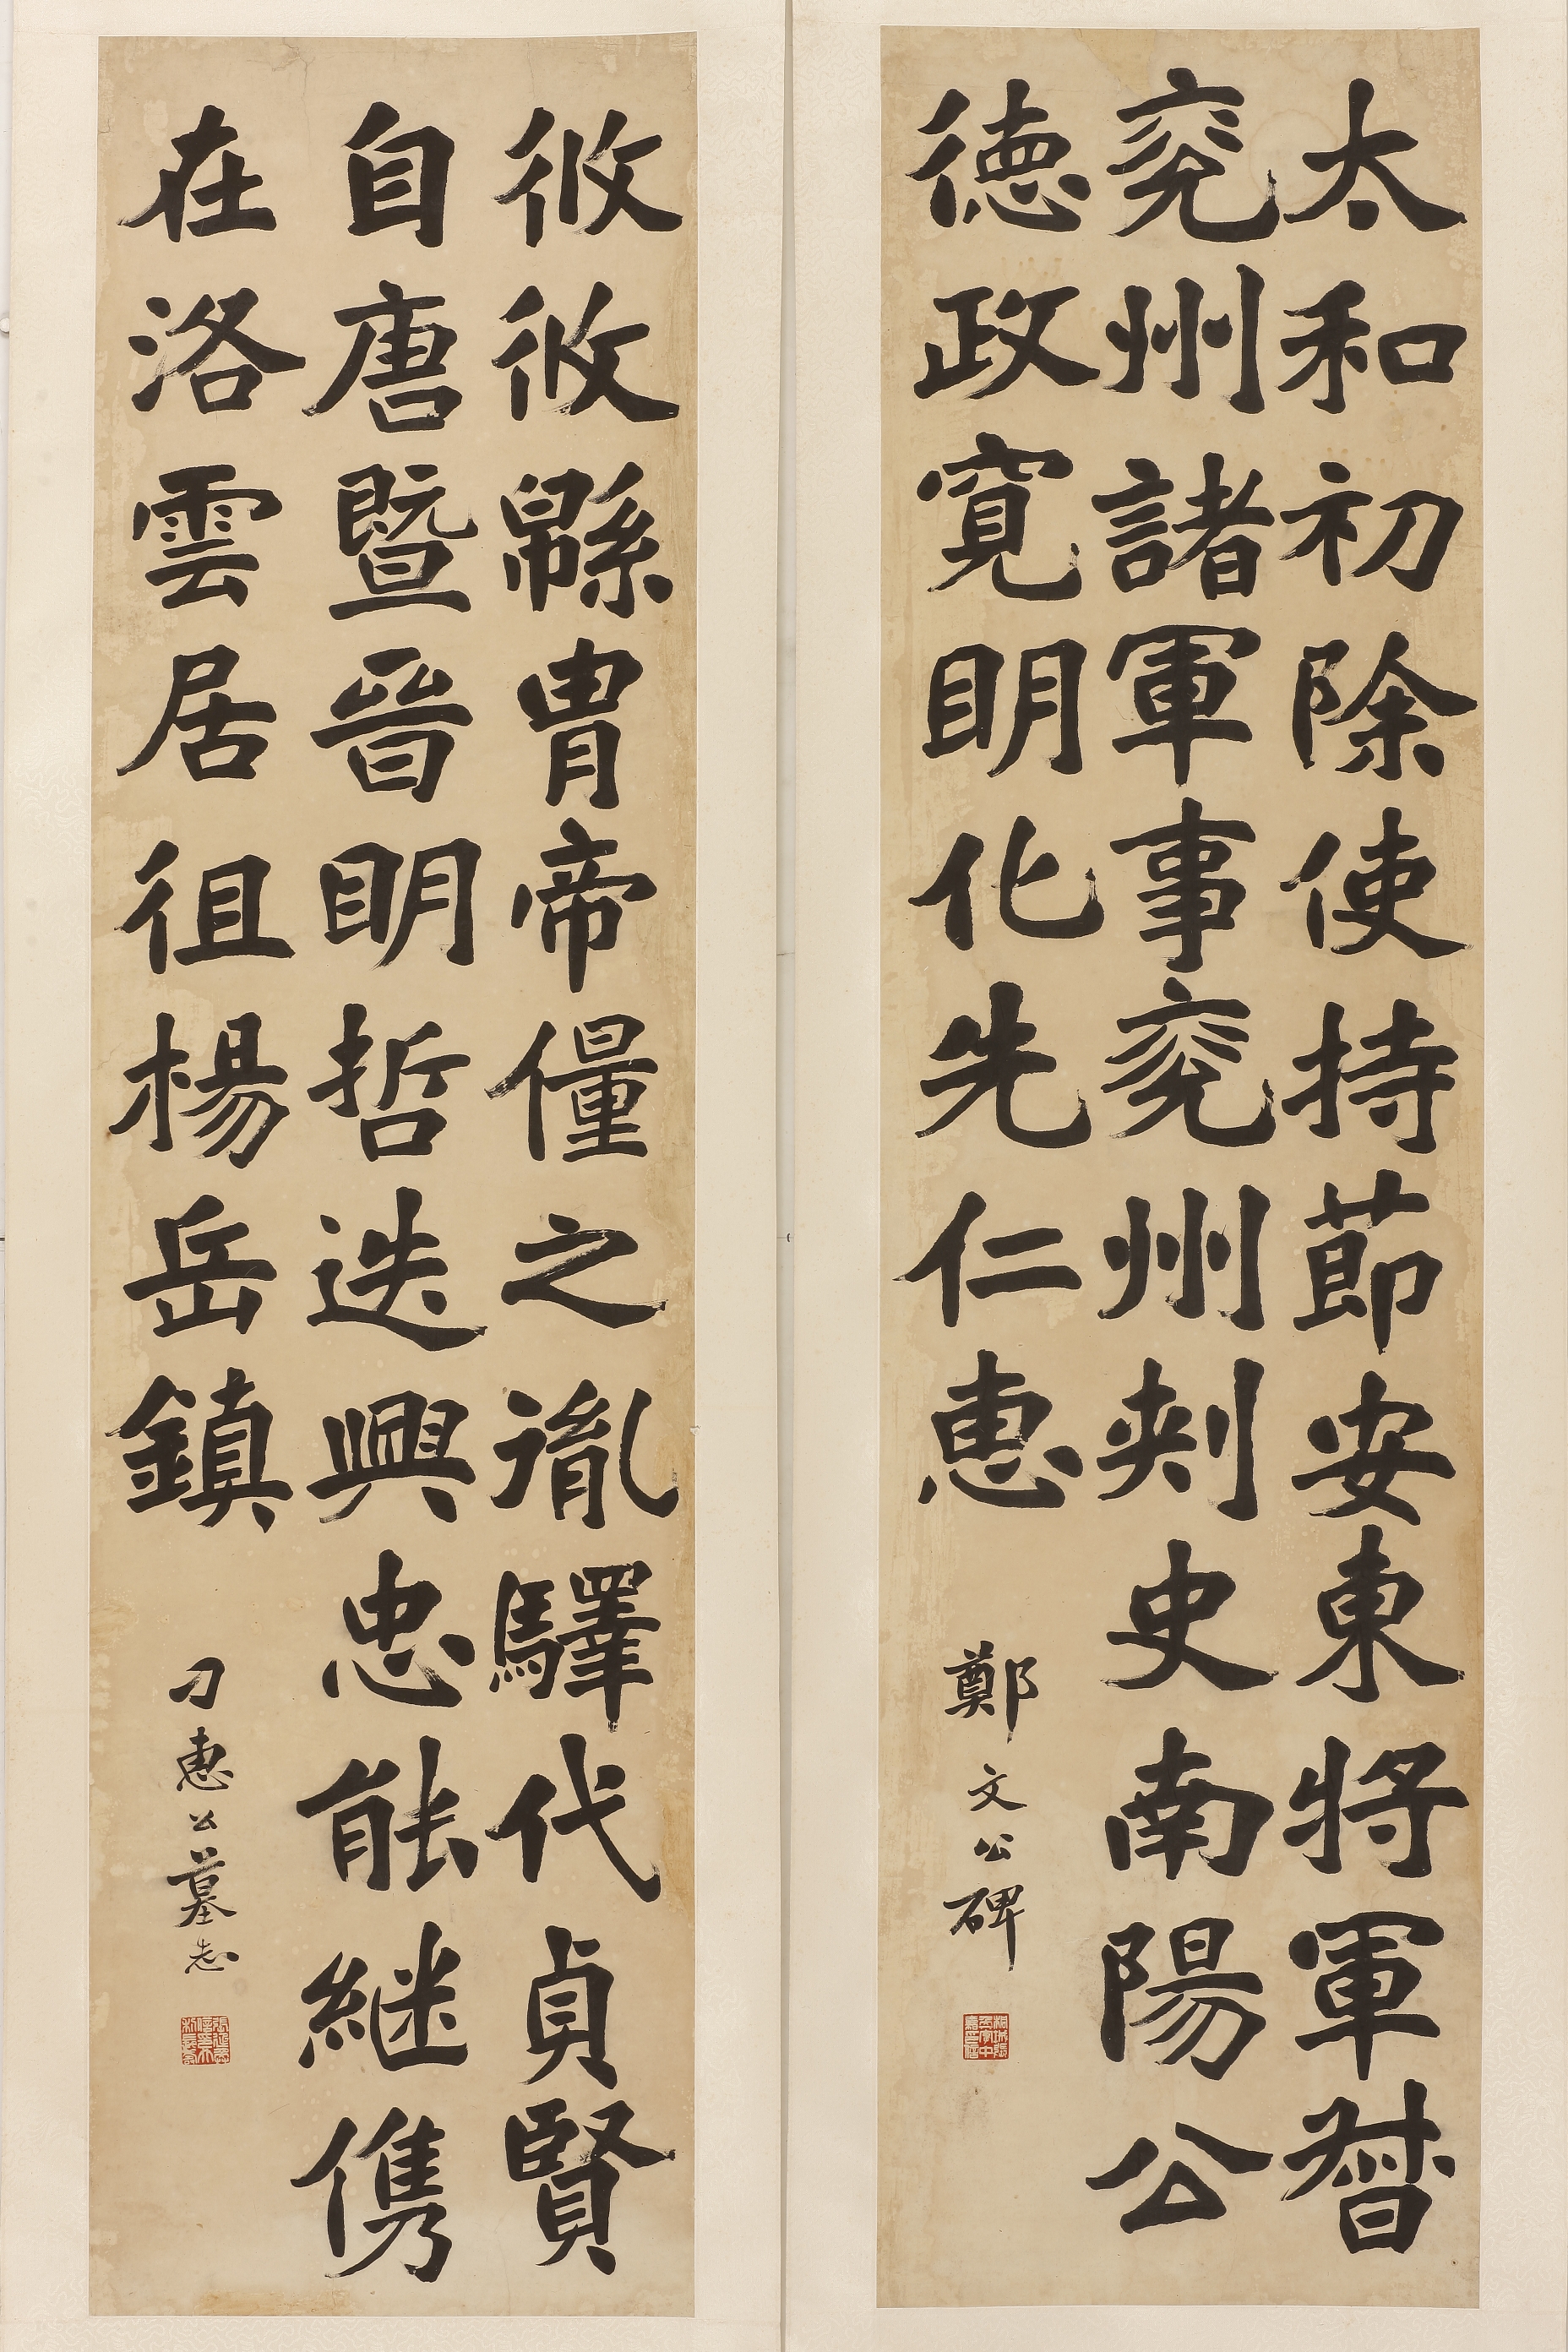 太和初除使持莭安東將軍督
兖州諸軍事兖州刾史南陽公
德政寬眀化先仁惠
鄭文公碑
攸攸緜胄帝僮之胤驛代貞賢
自唐暨晉眀哲迭興忠能継儁
在洛雲居徂楊岳鎮
刁惠公墓志